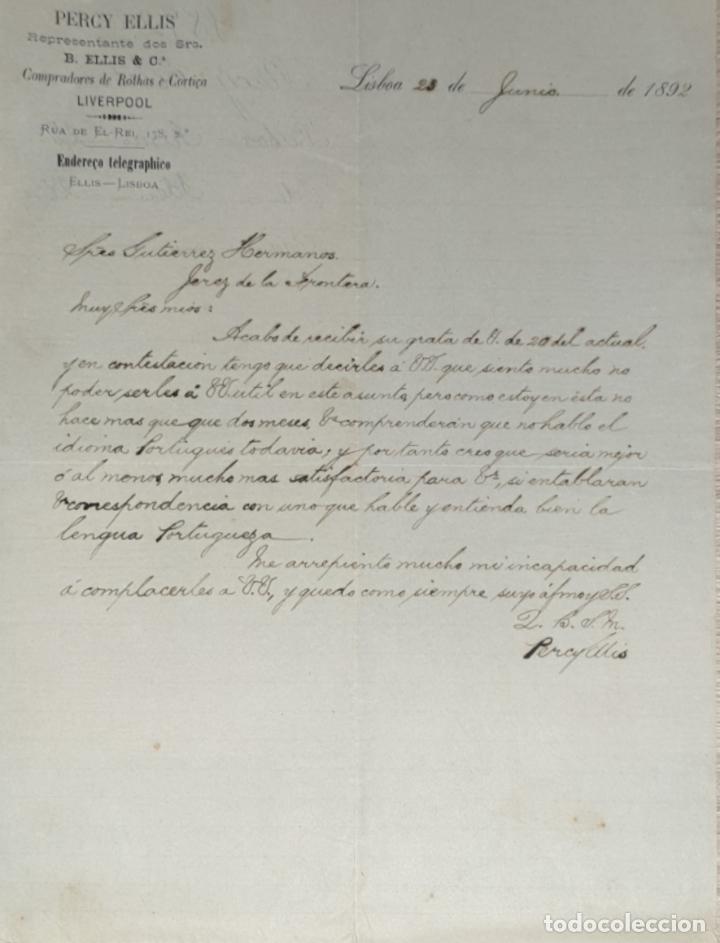 PERCY ELLIS
Representante dos Srs.
B. ELLIS & C.ª
Compradores de Rolhas e Cortiça
LIVERPOOL
RUA DE EL-REI, 178, 2.º
Endereço telegraphico
ELLIS—LISBOA
Lisboa 23 de Junio de 1892
Sres Gutierrez Hermanos.
Jerez de la Frontera.
Muy Sres mios:
Acabo de recibir su grata de V. de 20 del actual,
y en contestación tengo que decirles á VV. que siento mucho no
poder serles á VV util en este asunto, pero como estoy en ésta no
hace mas que que dos meses, Vs comprenderán que no hablo el
idioma Portugués todavia; y por tanto creo que seria mejor
ó al menos mucho mas satisfactoria para Vs, si entablaran
Vs correspondencia con uno que hable y entienda bien la
lengua Portugueza.
Me arrepiento mucho mi incapacidad
á complacerles a V.V., y quedo como siempre suyo afmo y S.S.
Q. B. S. M.
Percy Ellis
todocoleccion